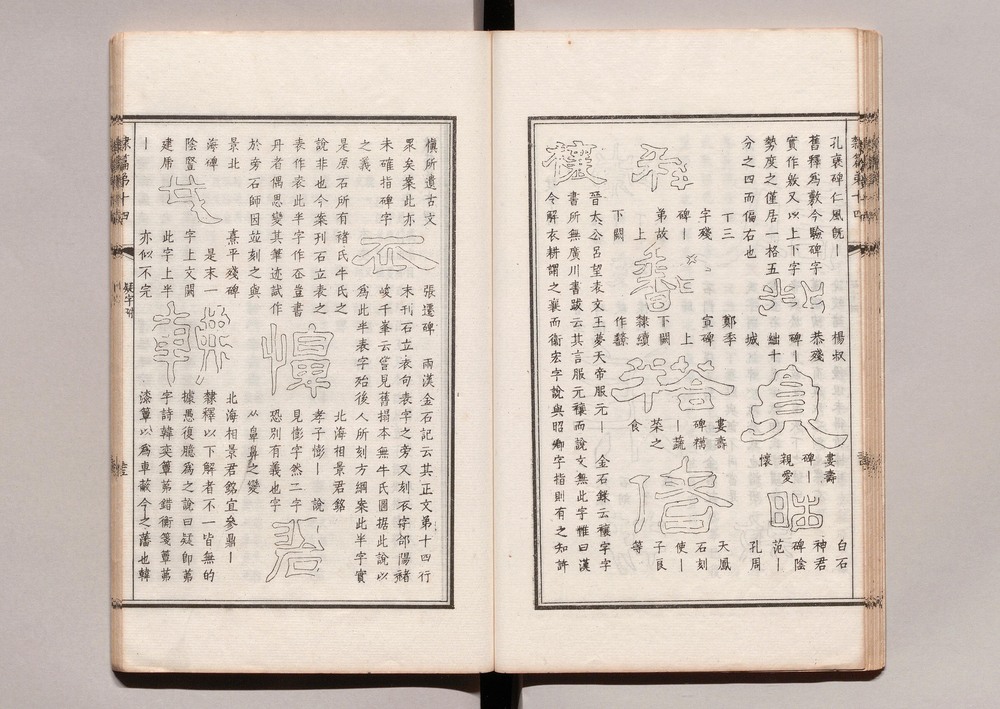 隸篇弟十四
孔襃碑仁風旣丨
舊釋爲敷今驗碑字
實作敘又以上下字
勢度之僅居一格五
分之四而偏右也
楊叔
恭殘
碑丨
白石
神君
碑陰
范丨
孔周
婁壽
碑丨
親愛
懷
丁三
字殘
碑丨
弟故
上
下闕
鄭季
宣碑
上
下闕
隸續
作
婁壽
碑糲
丨蔬
菜之
食
天鳳
石刻
使丨
子良
等
晉太公呂望表文王夢天帝服元丨
金石錄云禳字字
書所無廣川書跋云其言服元禳而說文無此字惟曰漢
令解衣耕謂之襄而衞宏字說與昭卿字指則有之知許
愼所遺古文
衆矣案此亦
未確指碑字
之義
張遷碑
兩漢金石記云其正文弟十四行
末刊石立表句表字之旁又刻衣字郃陽褚
峻千峯云曾見舊搨本無牛氏圖据此說以
爲此半表字殆後人所刻方綱案此半字實
是原石所有褚氏牛氏之
說非也今案刊石立表之
表作表此半字作衣豈書
丹者偶思變其筆迹試作
於旁石師因竝刻之與
北海相景君銘
孝子憻丨
說
見憉字然二字
恐別有義也字
从皐鼻之變
景北
海碑
陰豎
建虒
丨
熹平殘碑
是末一
字上文闕
此字上半
亦似不完
北海相景君銘宜參鼎丨
隸釋以下解者不一皆無的
據愚復臆爲之說曰疑卽茀
字詩韓奕簟茀錯衡箋簟茀
漆簟以爲車蔽今之藩也韓
隸篇弟十四
疑字